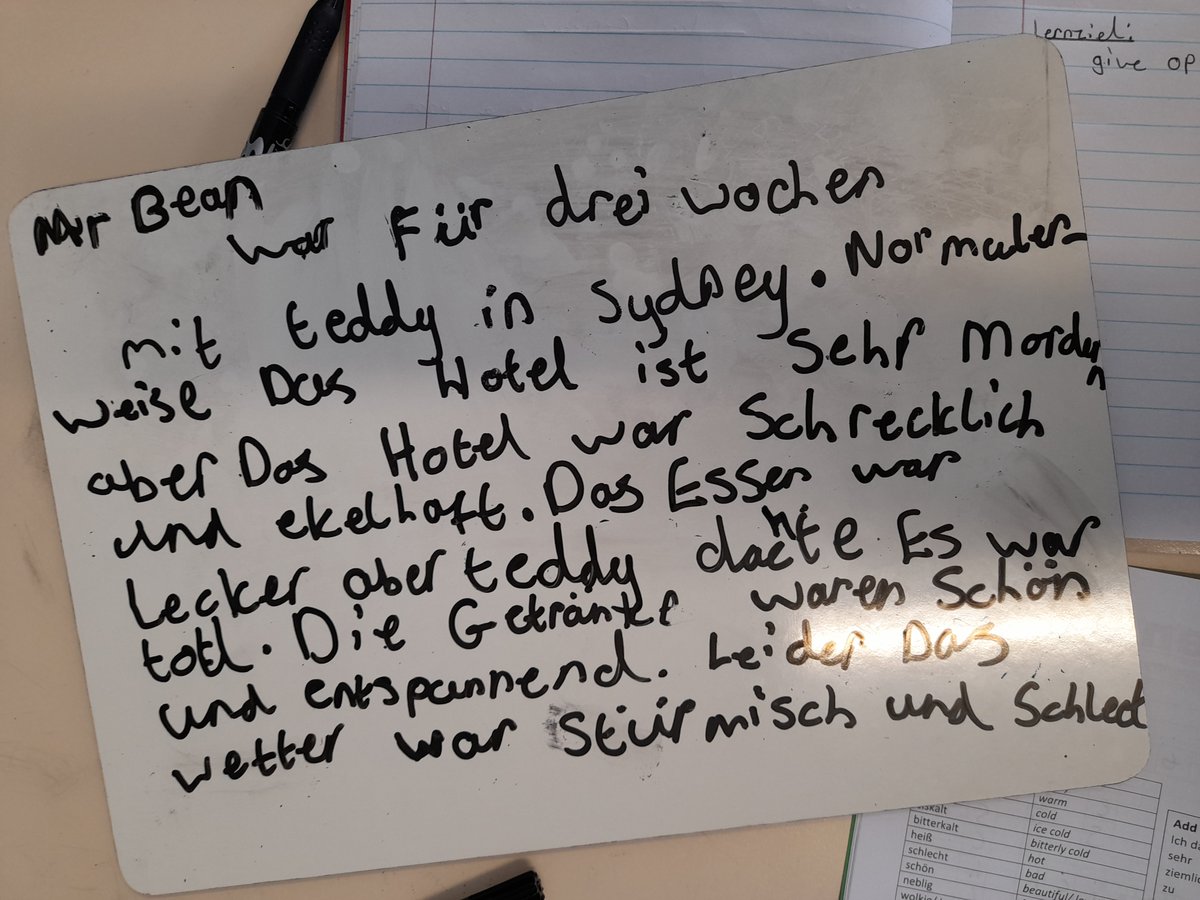 Lernziel:
give OP
Mr Bean
war Für drei wochen
mit teddy in Sydney. Normaler-
weise Das Hotel ist Sehr Mordern
aber Das Hotel war Schrecklich
und ekelhaft. Das Essen war
Lecker aber teddy dachte Es war
toll. Die Getränke waren Schön
und entspannend. Leider Das
wetter war Stürmisch und Schlect
warm
eiskalt cold
bitterkalt ice cold
heiß bitterly cold
schlecht hot
schön bad
neblig beautiful/
Add
Ich da
sehr
ziemlic
zu